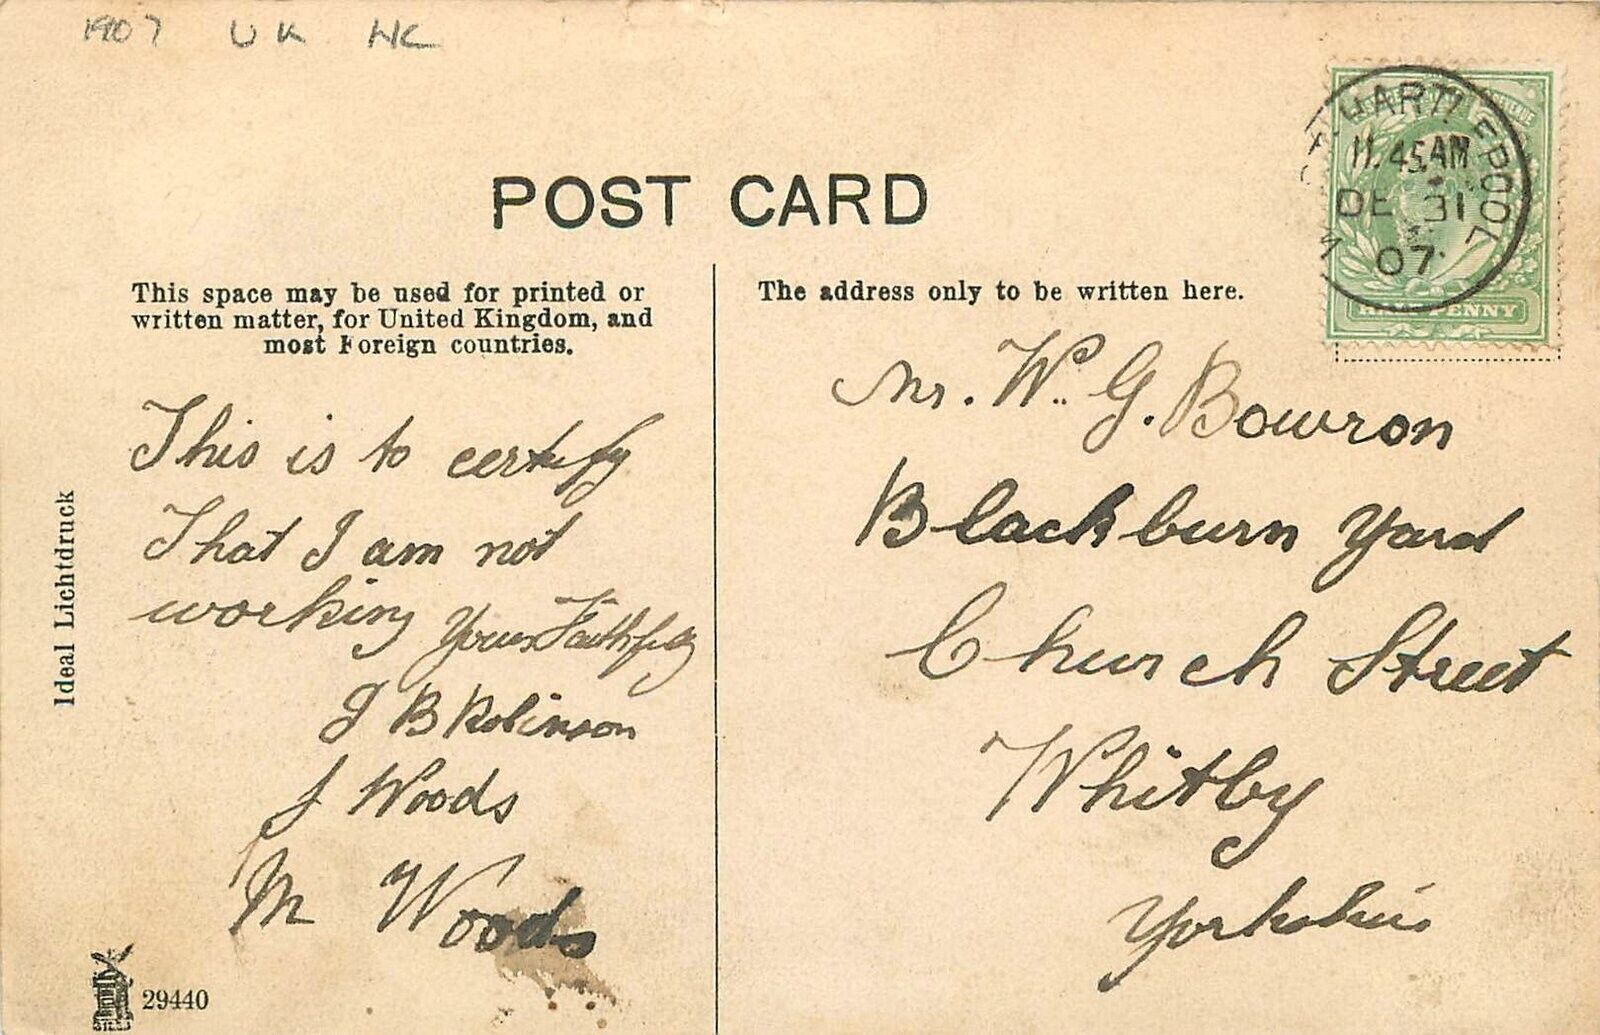 1907 UK HC
POST CARD
This space may be used for printed or
written matter, for United Kingdom, and
most Foreign countries.
This is to certify
That I am not
working Yours Faithfully
J B Robinson
J Woods
M Woods
Ideal Lichtdruck
29440
The address only to be written here.
Mr. W. G. Bowron
Blackburn Yard
Church Street
Whitby
Yorkshire
W. HARTLEPOOL
11.45 AM
DE 31
07
HALFPENNY